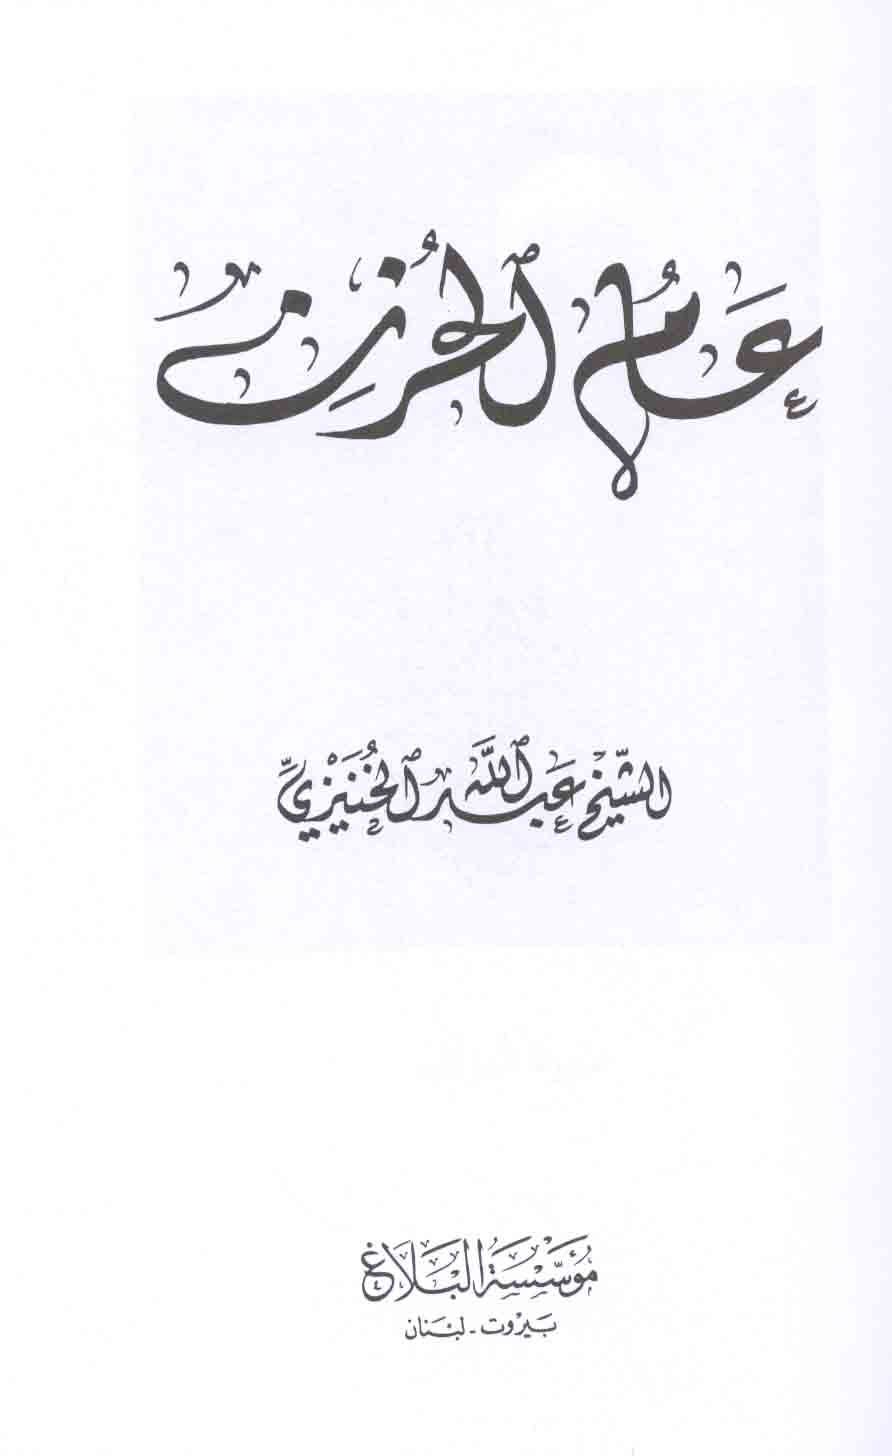 عام الحزن
الشيخ عبد الله الخنيزي
مؤسسة البلاغ
بيروت - لبنان